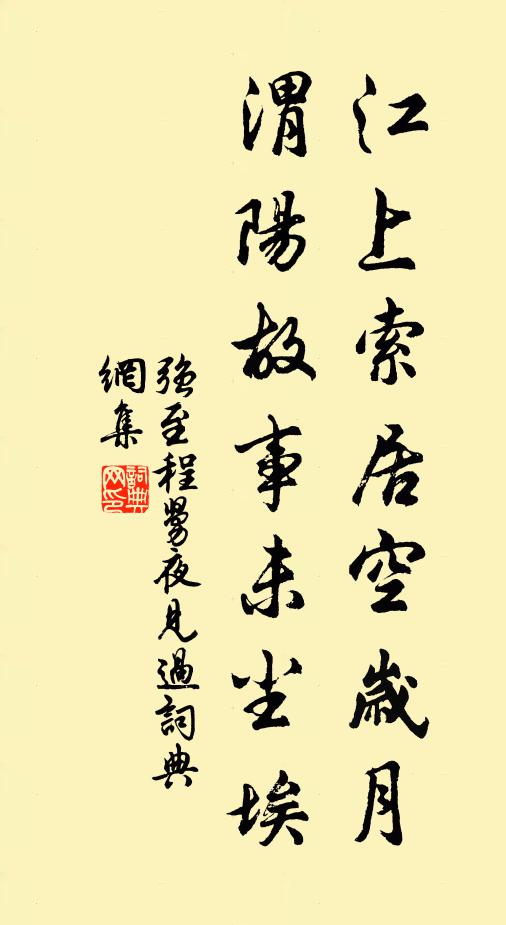 江上索居空歲月
渭陽故事未尘埃
强至程舅夜見過詞典
網集
詞典
网印